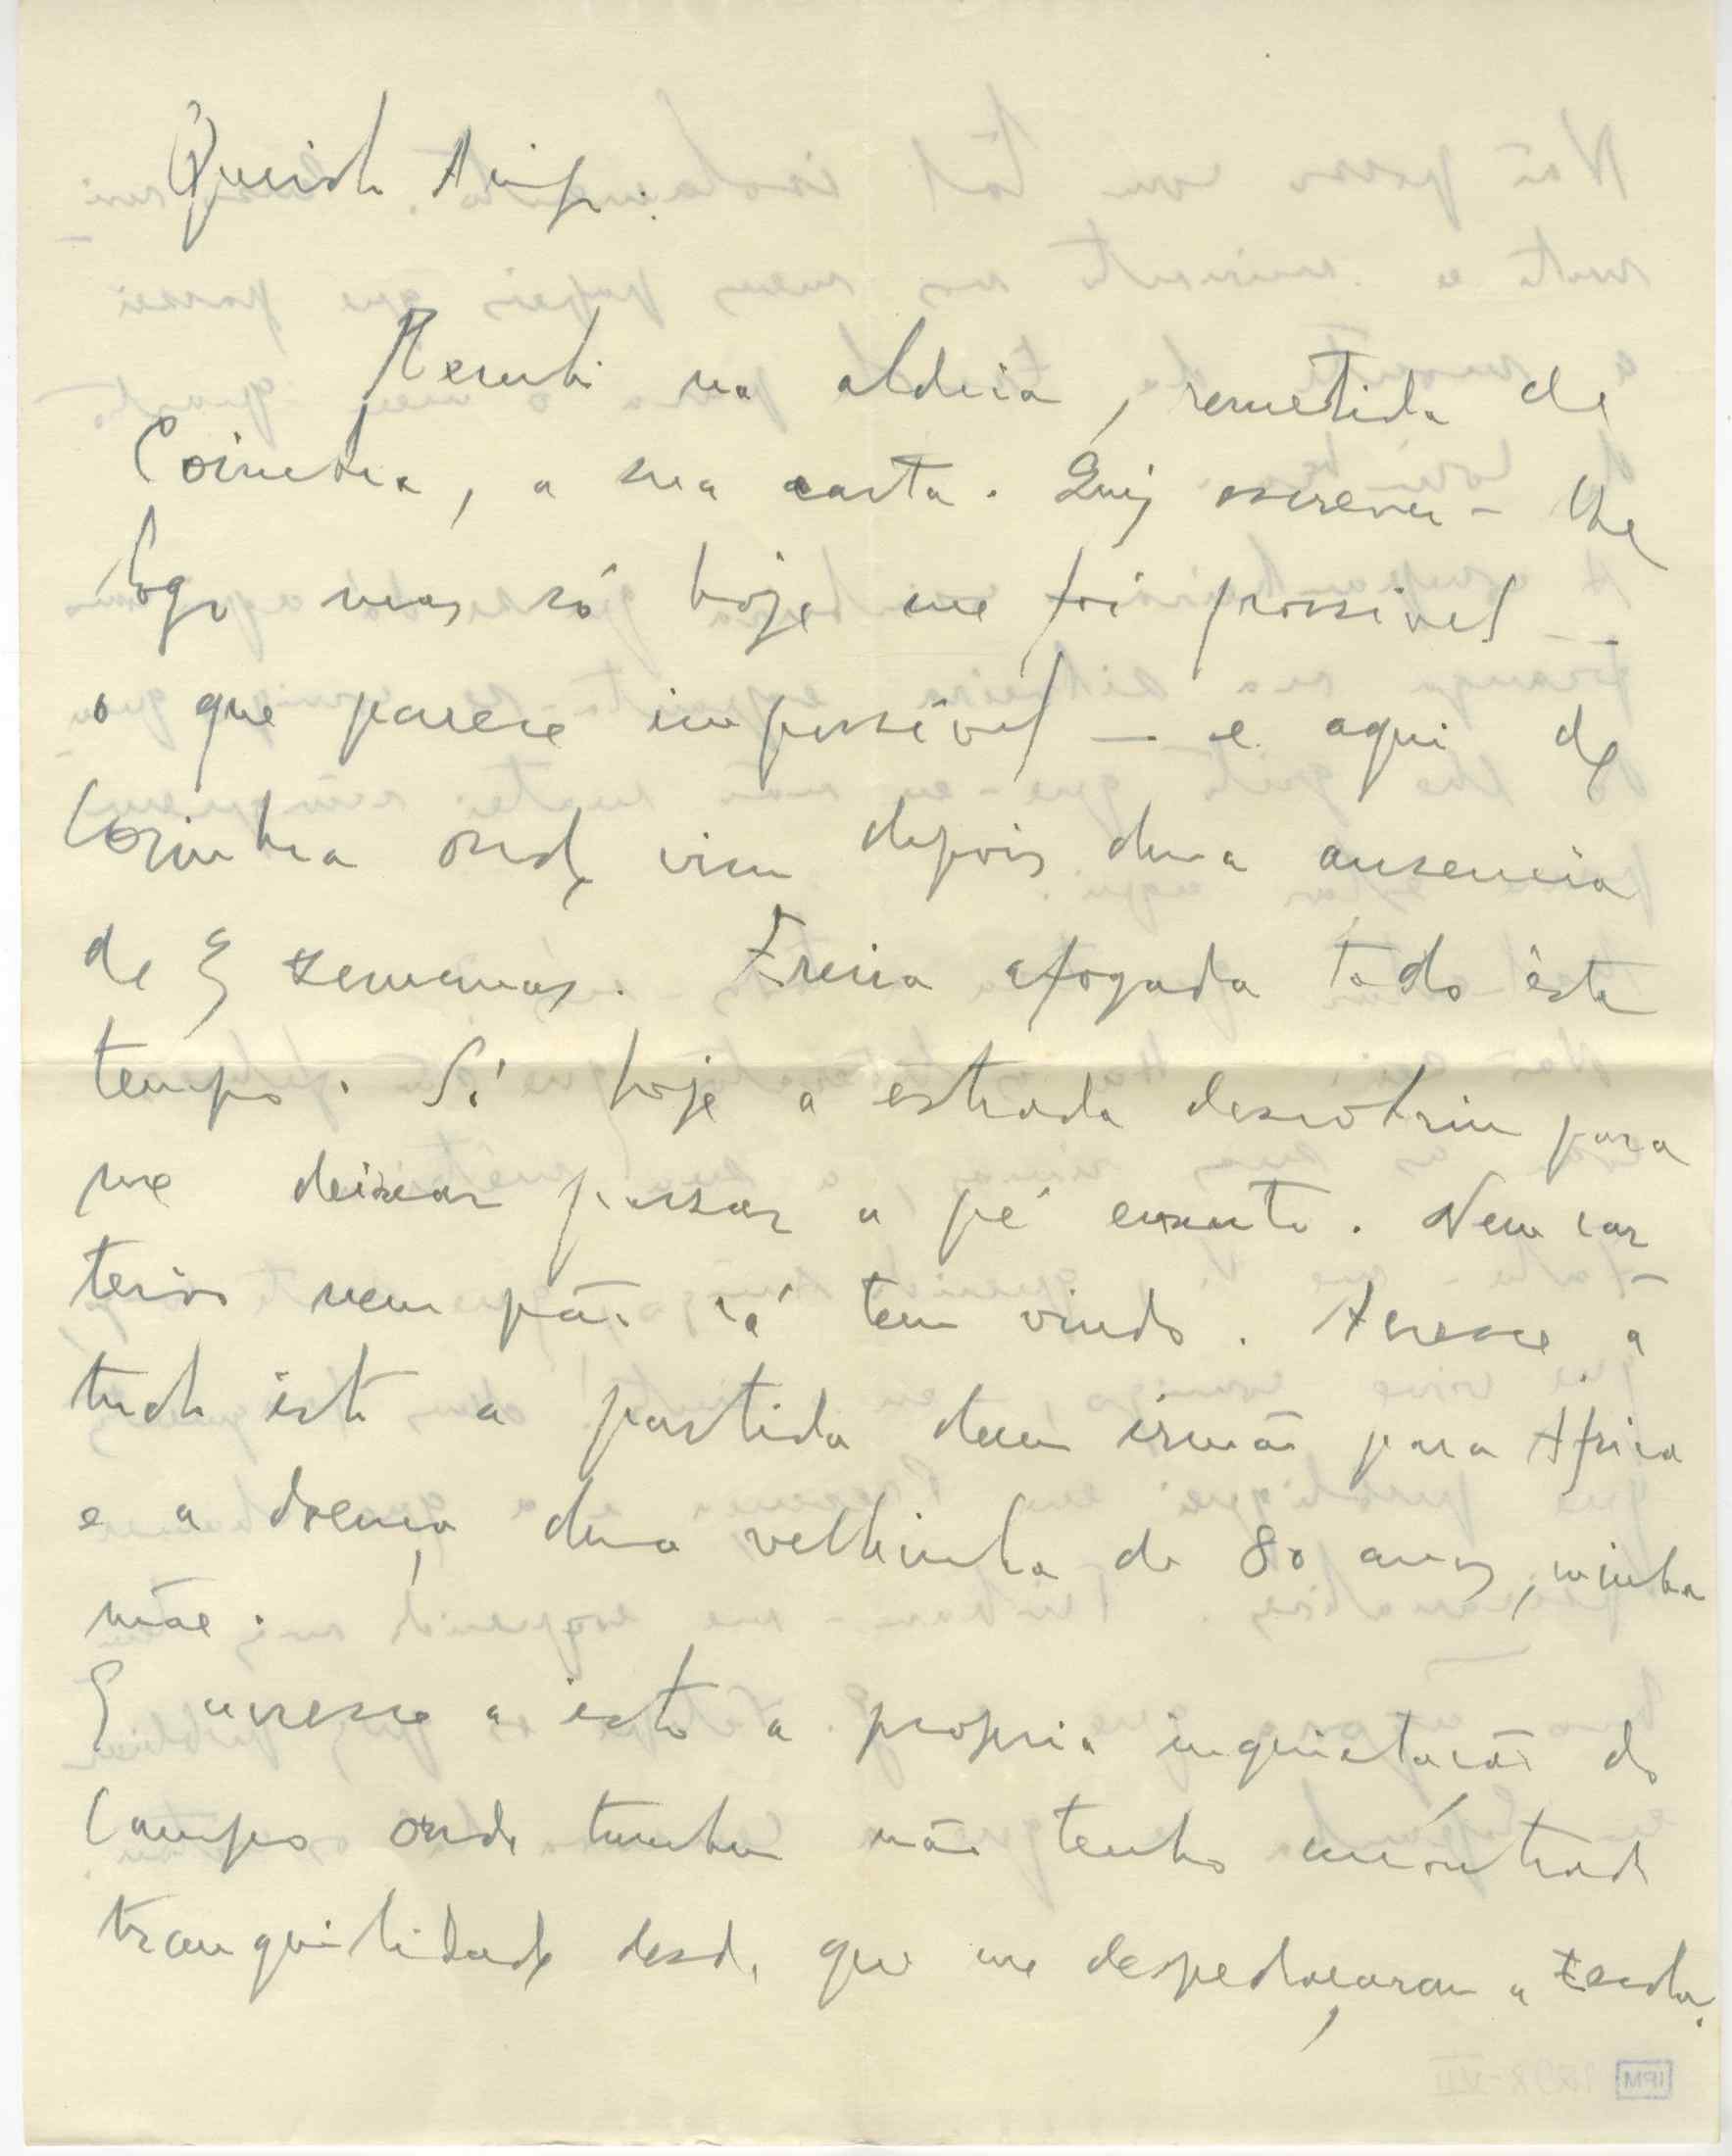 Querido Amigo.
Recebi na aldeia, remetida de
Coimbra, a sua carta. Quiz escrever-lhe
logo mas só hoje me foi possivel —
o que parece impossível — e aqui de
Coimbra onde vim depois duma ausencia
de 3 semanas. Ereira afogada todo êste
tempo. Só hoje a estrada descobriu para
me deixar passar a pé enxuto. Nem car-
teiro nem pão cá tem vindo. Acresce a
tudo isto a partida dum irmão para Africa
e a doença duma velhinha de 80 anos, minha
mãe.
E acresce a isto a propria inquietação do
Campo onde tambem não tenho encontrado
tranquilidade desde que me despedaçaram a Escola.
IPM